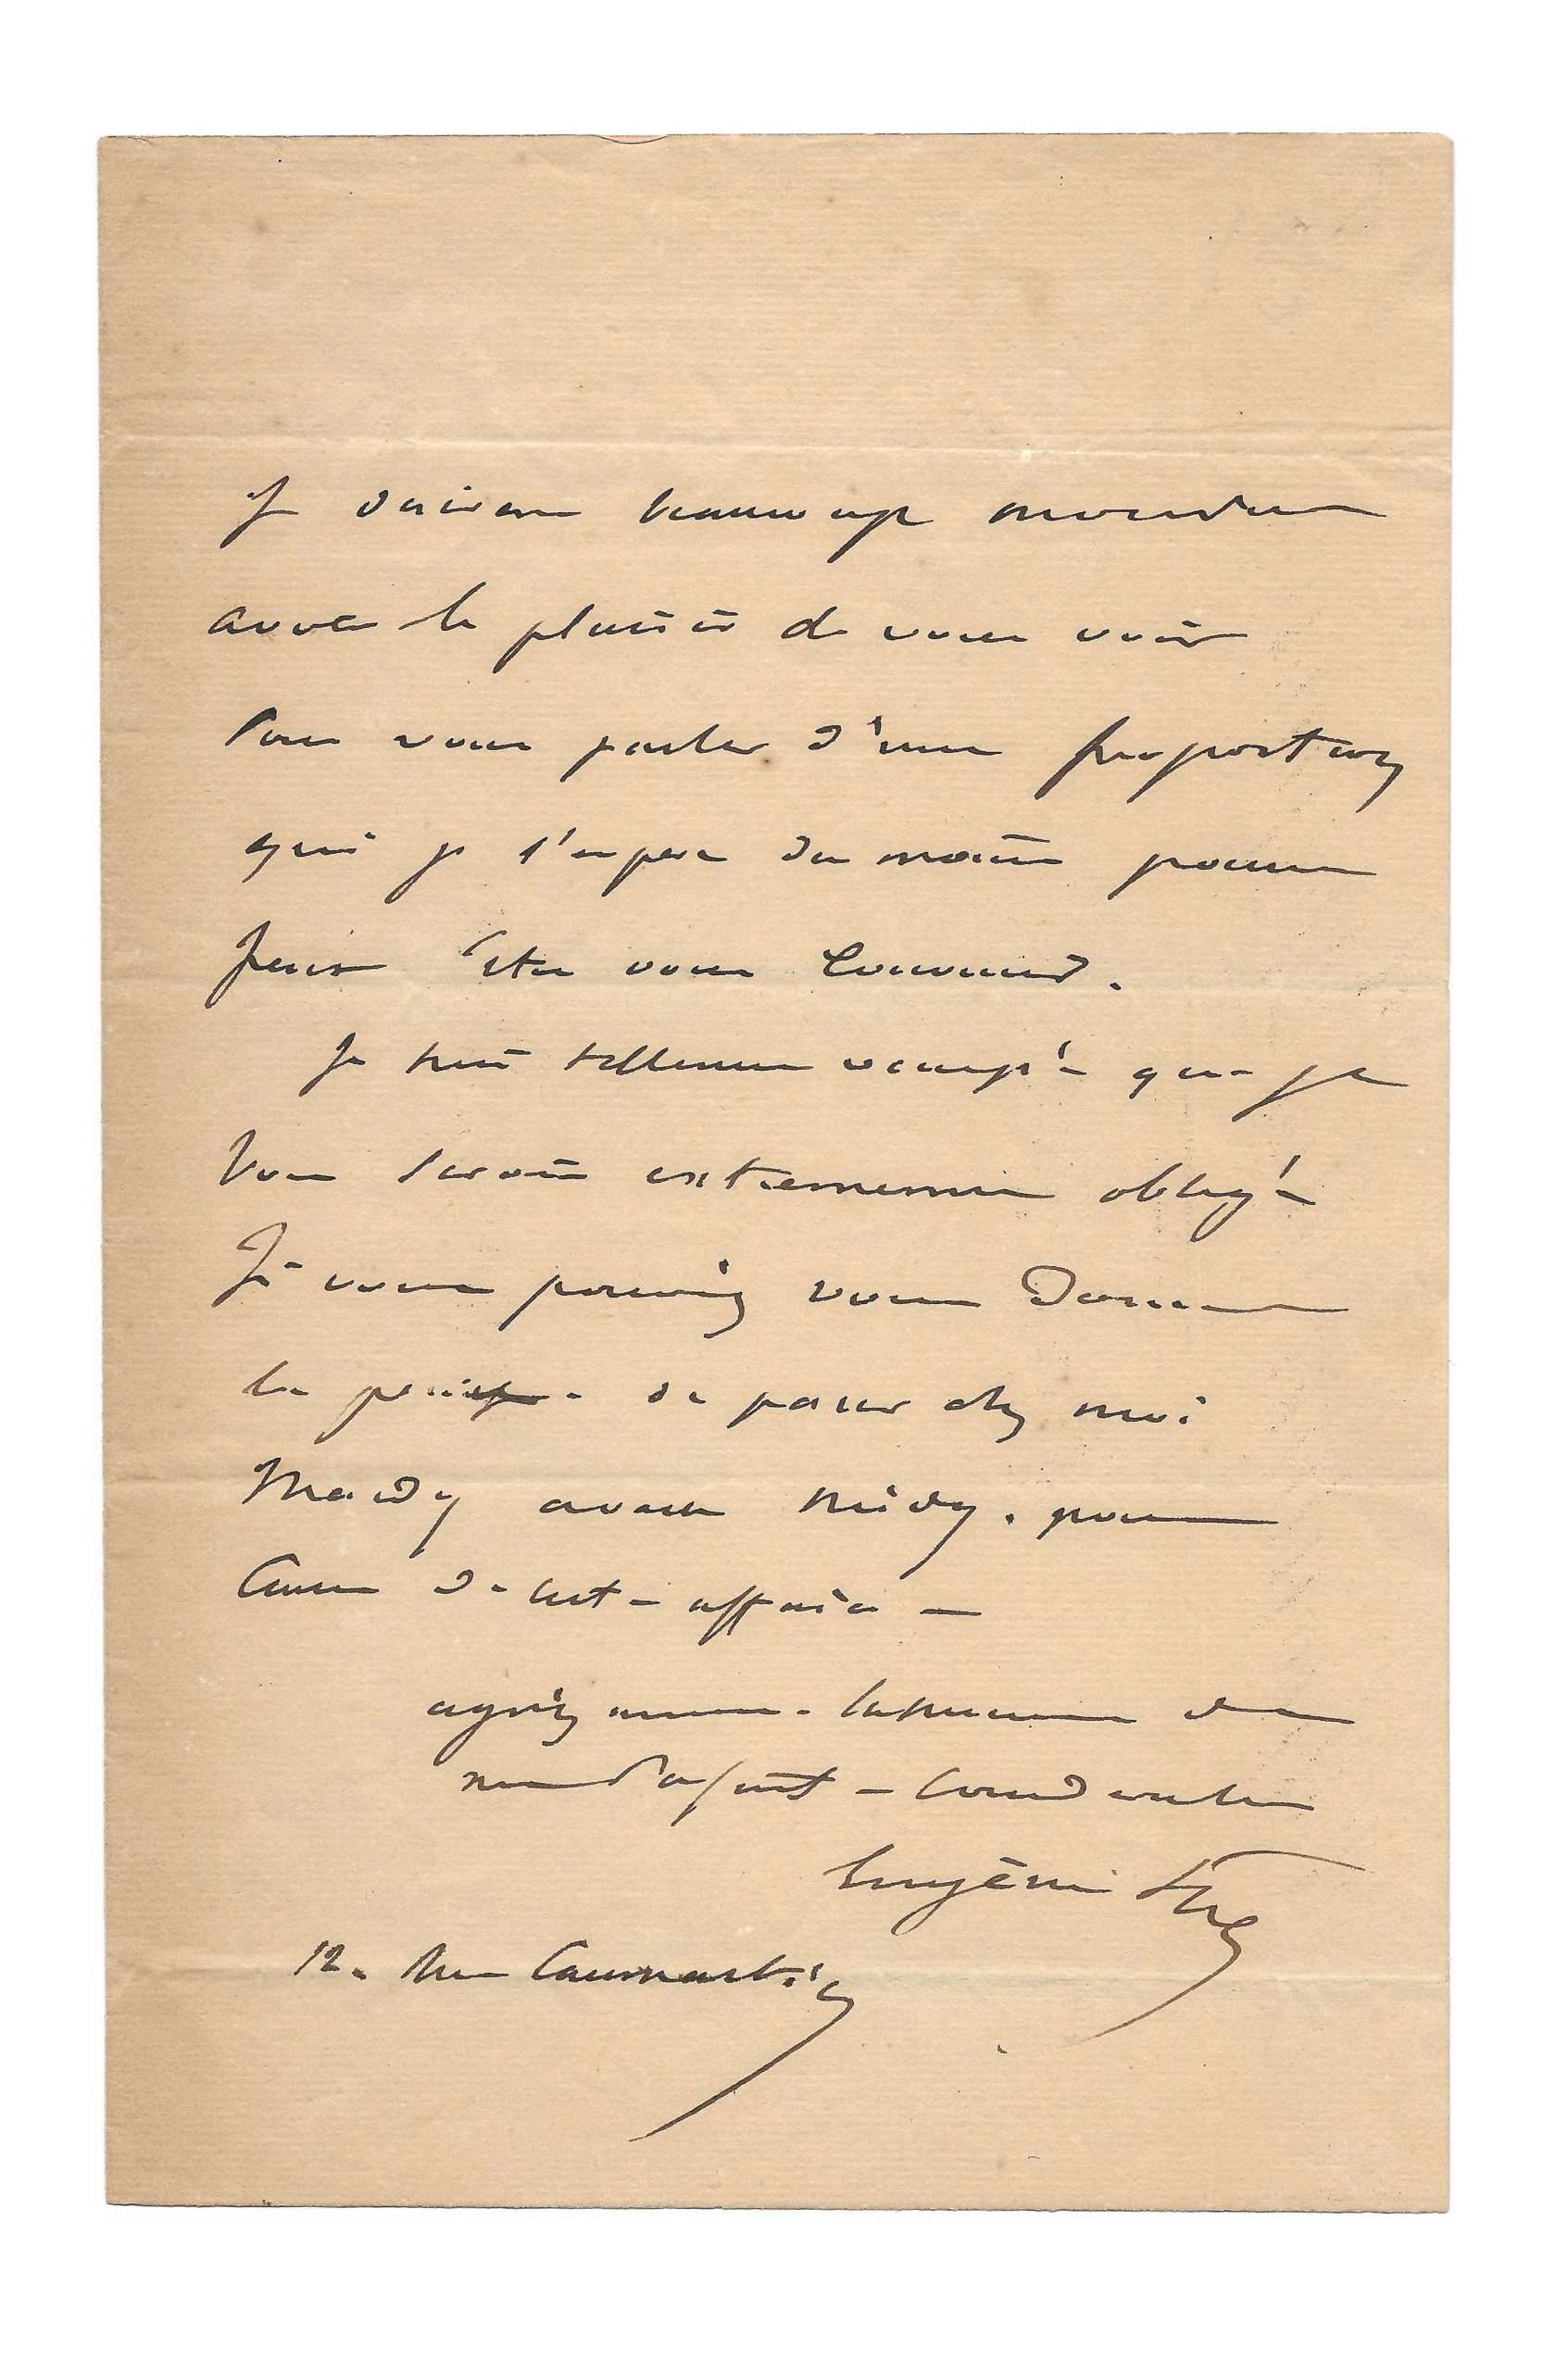 Je désirerais beaucoup monsieur
avoir le plaisir de vous voir
Pour vous parler d'une proposition
qui je l'espère du moins pourra
peut être vous convenir.
Je suis tellement occupé que je
Vous serais extrêmement obligé
Si vous pouviez vous donner
la peine de passer chez moi
Mardy avant midy. pour
Causer de cette affaire —
agréez l'assurance de
parfaite considération
Eugène Sue
12. Rue Caumartin